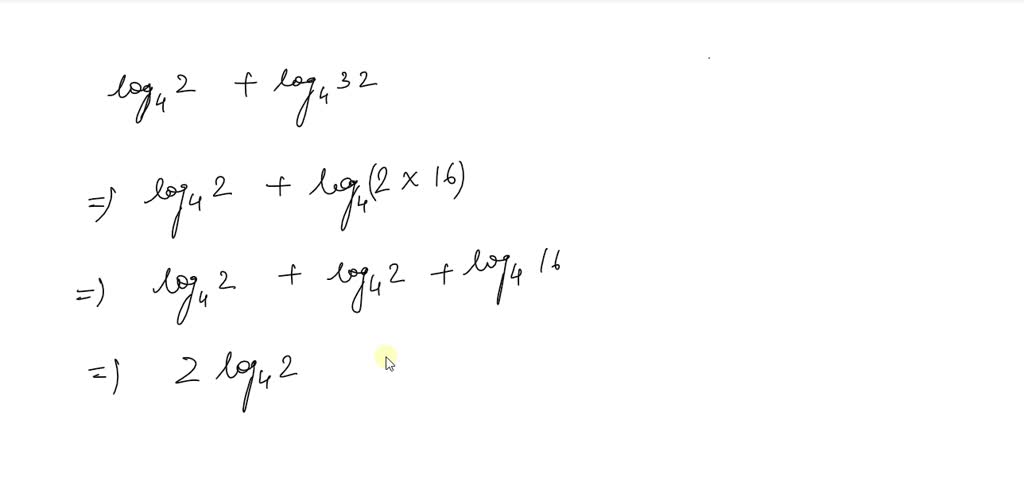 log₄2 + log₄32
⇒ log₄2 + log₄(2 × 16)
⇒ log₄2 + log₄2 + log₄16
⇒ 2 log₄2